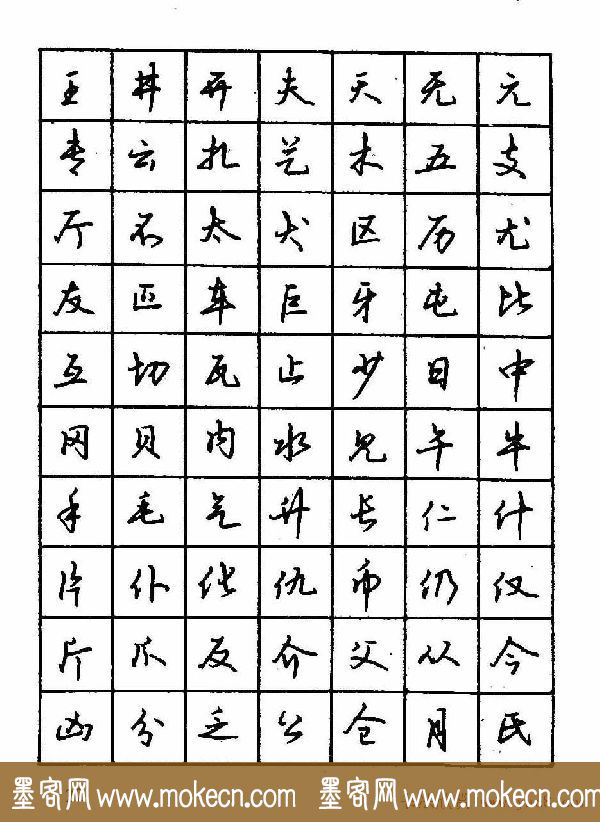 王 井 开 夫 天 无 元
专 云 扎 艺 木 五 支
厅 不 太 犬 区 历 尤
友 匹 车 巨 牙 屯 比
互 切 瓦 止 少 日 中
冈 贝 内 水 见 午 牛
手 毛 气 升 长 仁 什
片 仆 化 仇 币 仍 仅
斤 爪 反 介 父 从 今
凶 分 乏 公 仓 月 氏
墨客网 www.mokecn.com 墨客网 www.mokecn.com